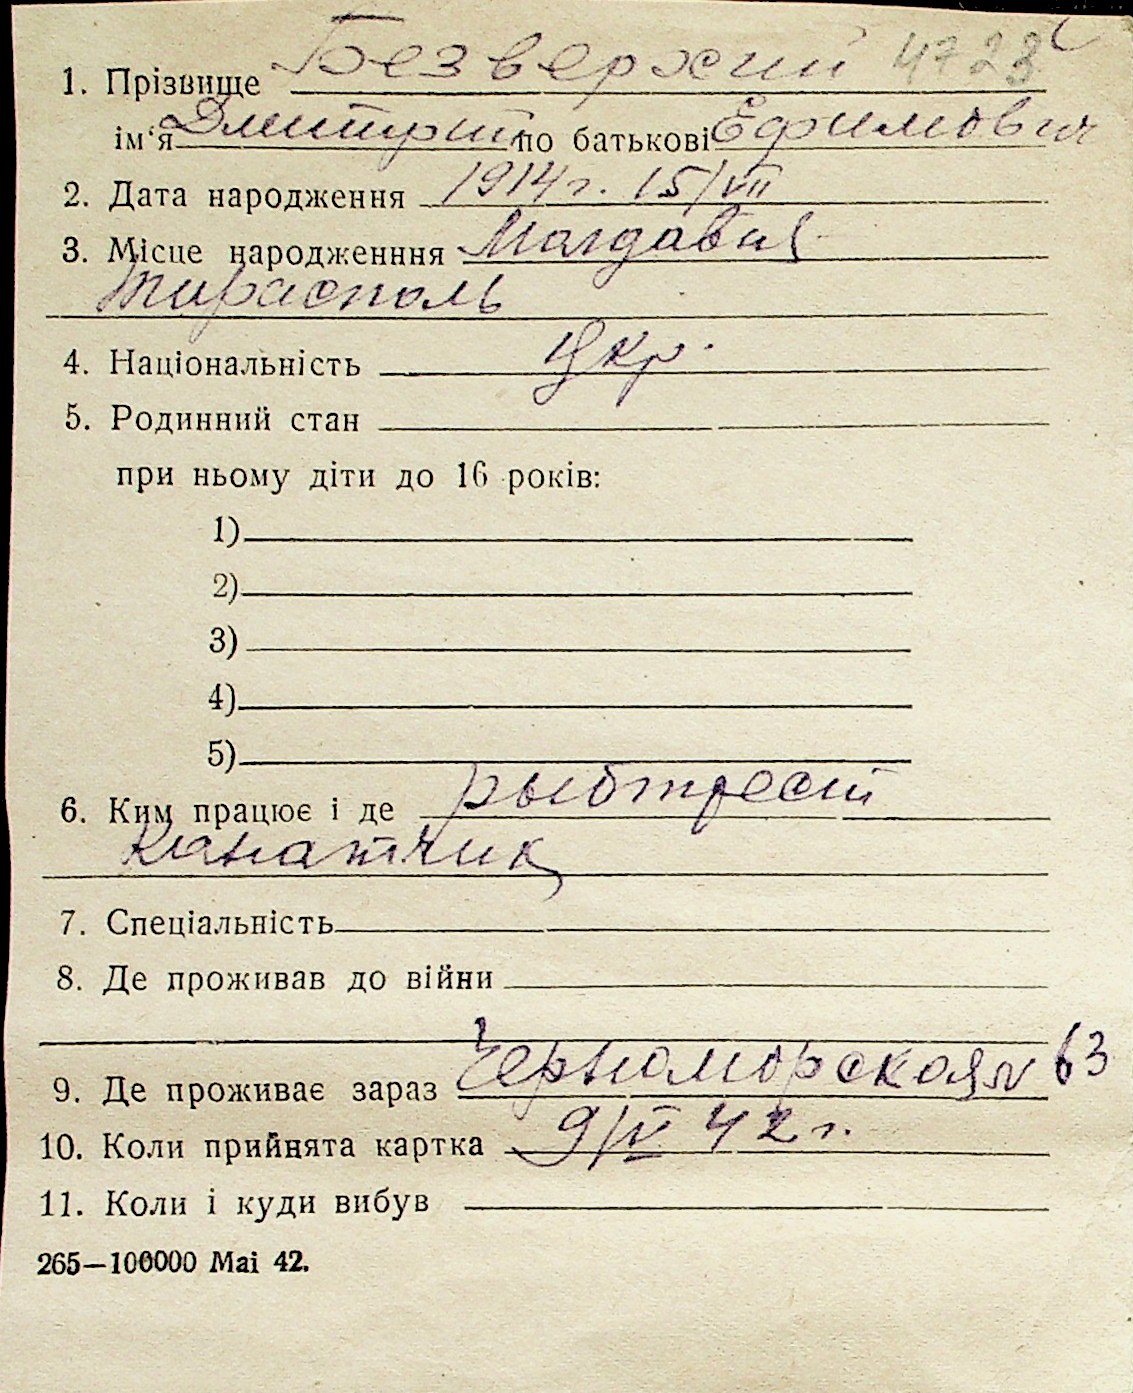 1. Прізвище Безверхий 4723
ім‘я Дмитрий по батькові Ефимович
2. Дата народження 1914 г. 15/VII
3. Місце народженння Молдавия
Тирасполь
4. Національність Укр.
5. Родинний стан
при ньому діти до 16 років:
1)
2)
3)
4)
5)
6. Ким працює і де рыбтрест
Канатчик
7. Спеціальність
8. Де проживав до війни
9. Де проживає зараз Черноморская № 63
10. Коли прийнята картка 9/IV 42 г.
11. Коли і куди вибув
265—100000 Mai 42.